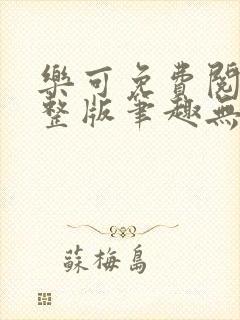 樂可免費閱
整版筆趣無
蘇梅島